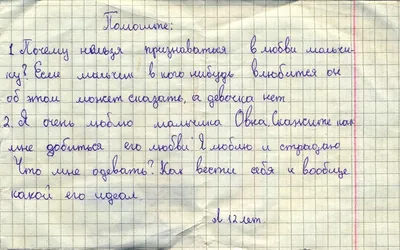 Помогите:
1. Почему нельзя признаваться в любви мальчи-
ку? Если мальчик в кого нибудь влюбится он
об этом может сказать, а девочка нет
2. Я очень люблю мальчика Овна. Скажите как
мне добиться его любви? Я люблю и страдаю
Что мне одевать? Как вести себя и вообще
какой его идеал.
Л 12 лет.